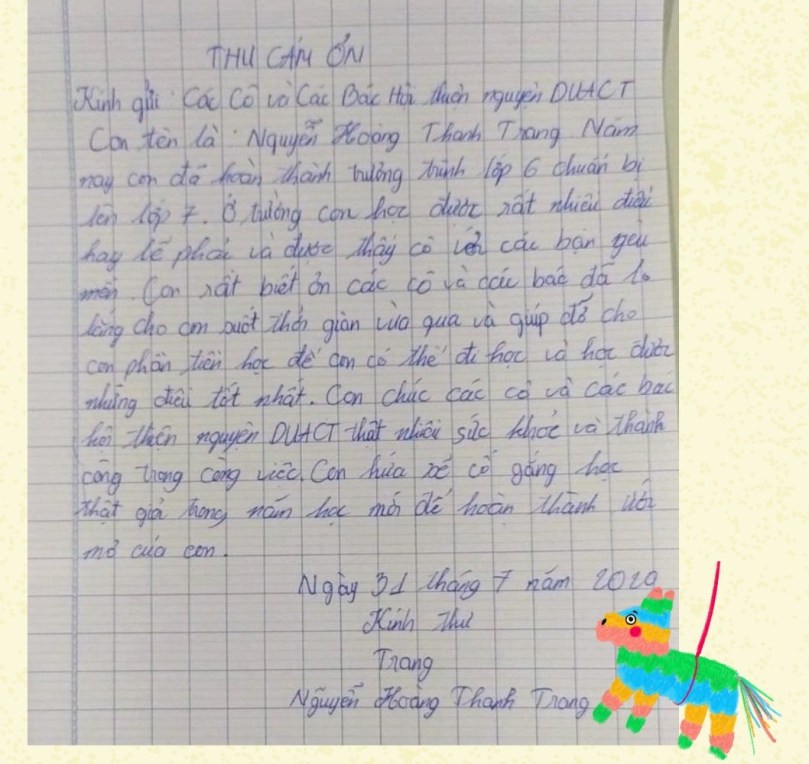 THƯ CÁM ƠN
Kính gửi: Các Cô và Các Bác Hội thiện nguyện DUACT
Con tên là: Nguyễn Hoàng Thanh Trang Năm
nay con đã hoàn thành trường trình lớp 6 chuẩn bị
lên lớp 7. Ở trường con học được rất nhiều điều
hay lẽ phải và được thầy cô với các bạn yêu
mến. Con rất biết ơn các cô và các bác đã lo
lắng cho con suốt thời gian vừa qua và giúp đỡ cho
con phần tiền học để con có thể đi học và học được
những điều tốt nhất. Con chúc các cô và các bác
hội thiện nguyện DUACT thật nhiều sức khỏe và thành
công trong công việc. Con hứa sẽ cố gắng học
thật giỏi trong năm học mới để hoàn thành ước
mơ của con.
Ngày 31 tháng 7 năm 2020
Kính thư
Trang
Nguyễn Hoàng Thanh Trang